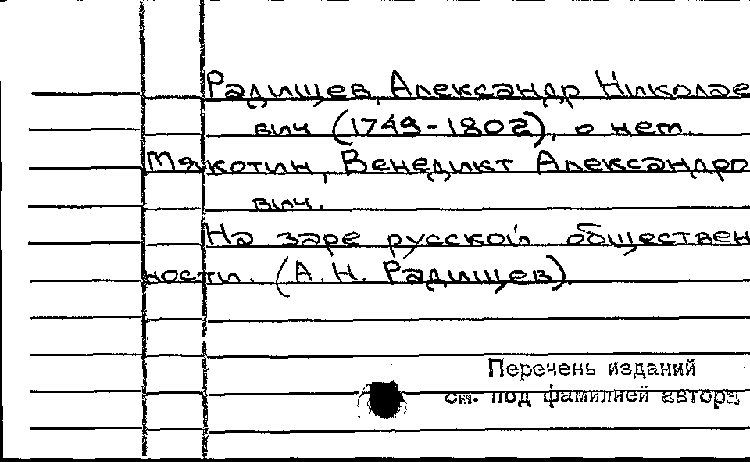 Радищев, Александр Николае
вич (1749-1802), о нем.
Мякотин, Венедикт Александро
вич.
На заре русской обществен
ности. (А. Н. Радищев).
Перечень изданий
см. под фамилией автора